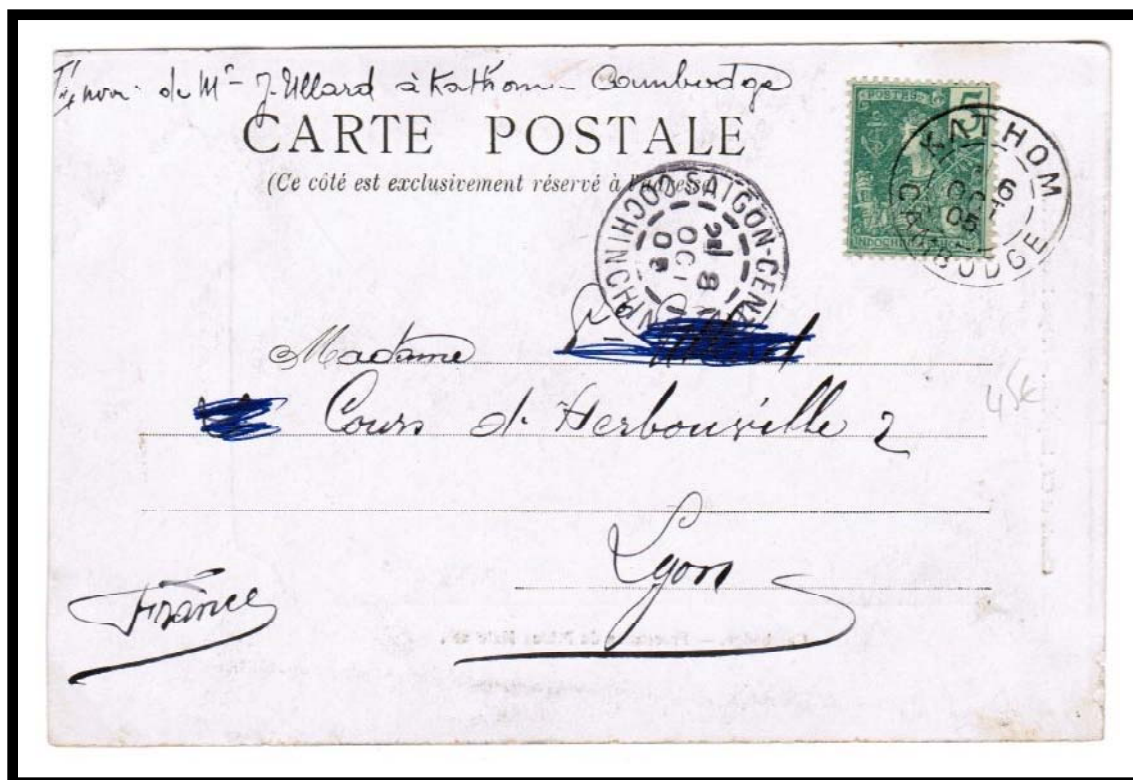 Envoi de Mr J. Ullard à Kathom Cambodge
CARTE POSTALE
(Ce côté est exclusivement réservé à l'adresse)
POSTES 5
INDOCHINE FRANÇAISE
KATHOM
6
OCT
05
CAMBODGE
SAIGON-CENTRAL
COCHINCHINE
8
OCT
05
Madame
Cours d'Herbouville 2
Lyon
France
45€